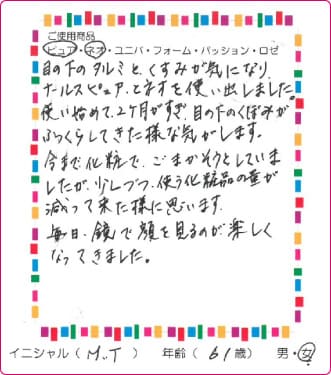 ご使用商品
ピュア・ネオ・ユニバ・フォーム・パッション・ロゼ
目の下のタルミと、くすみが気になり
ナールスピュア、とネオを使い出しました。
使い始めて、2ケ月がすぎ、目の下のくぼみが
ふっくらしてきた様な気がします。
今まで化粧で、ごまかそうとしていま
したが、少しづつ、使う化粧品の量が
減って来た様に思います。
毎日、鏡で顔を見るのが楽しく
なってきました。
イニシャル（ M.T ） 年齢（ 61歳） 男・女